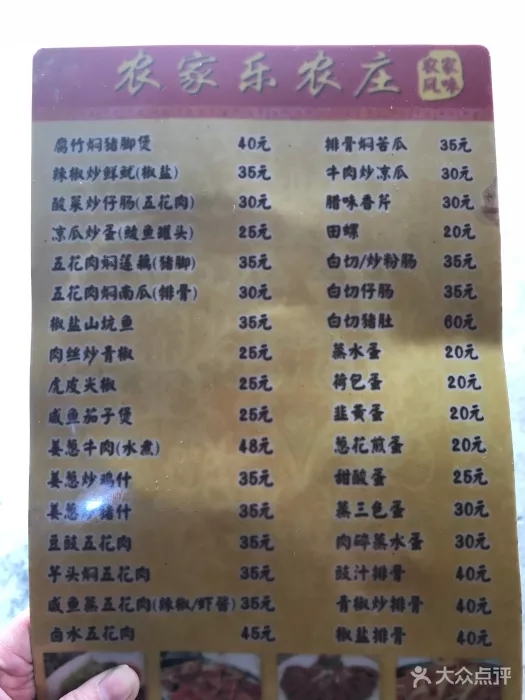 农家乐农庄
农家
风味
腐竹焖猪脚煲 40元
辣椒炒鲜鱿(椒盐) 35元
酸菜炒仔肠(五花肉) 30元
凉瓜炒蛋(鲮鱼罐头) 25元
五花肉焖莲藕(猪脚) 35元
五花肉焖南瓜(排骨) 30元
椒盐山坑鱼 35元
肉丝炒青椒 25元
虎皮尖椒 25元
咸鱼茄子煲 25元
姜葱牛肉(水煮) 48元
姜葱炒鸡什 35元
姜葱炒猪什 35元
豆豉五花肉 35元
芋头焖五花肉 35元
咸鱼蒸五花肉(辣椒/虾酱) 35元
卤水五花肉 45元
排骨焖苦瓜 35元
牛肉炒凉瓜 30元
腊味香芹 30元
田螺 20元
白切/炒粉肠 35元
白切仔肠 35元
白切猪肚 60元
蒸水蛋 20元
荷包蛋 20元
韭黄蛋 20元
葱花煎蛋 20元
甜酸蛋 25元
蒸三色蛋 30元
肉碎蒸水蛋 30元
豉汁排骨 40元
青椒炒排骨 40元
椒盐排骨 40元
大众点评